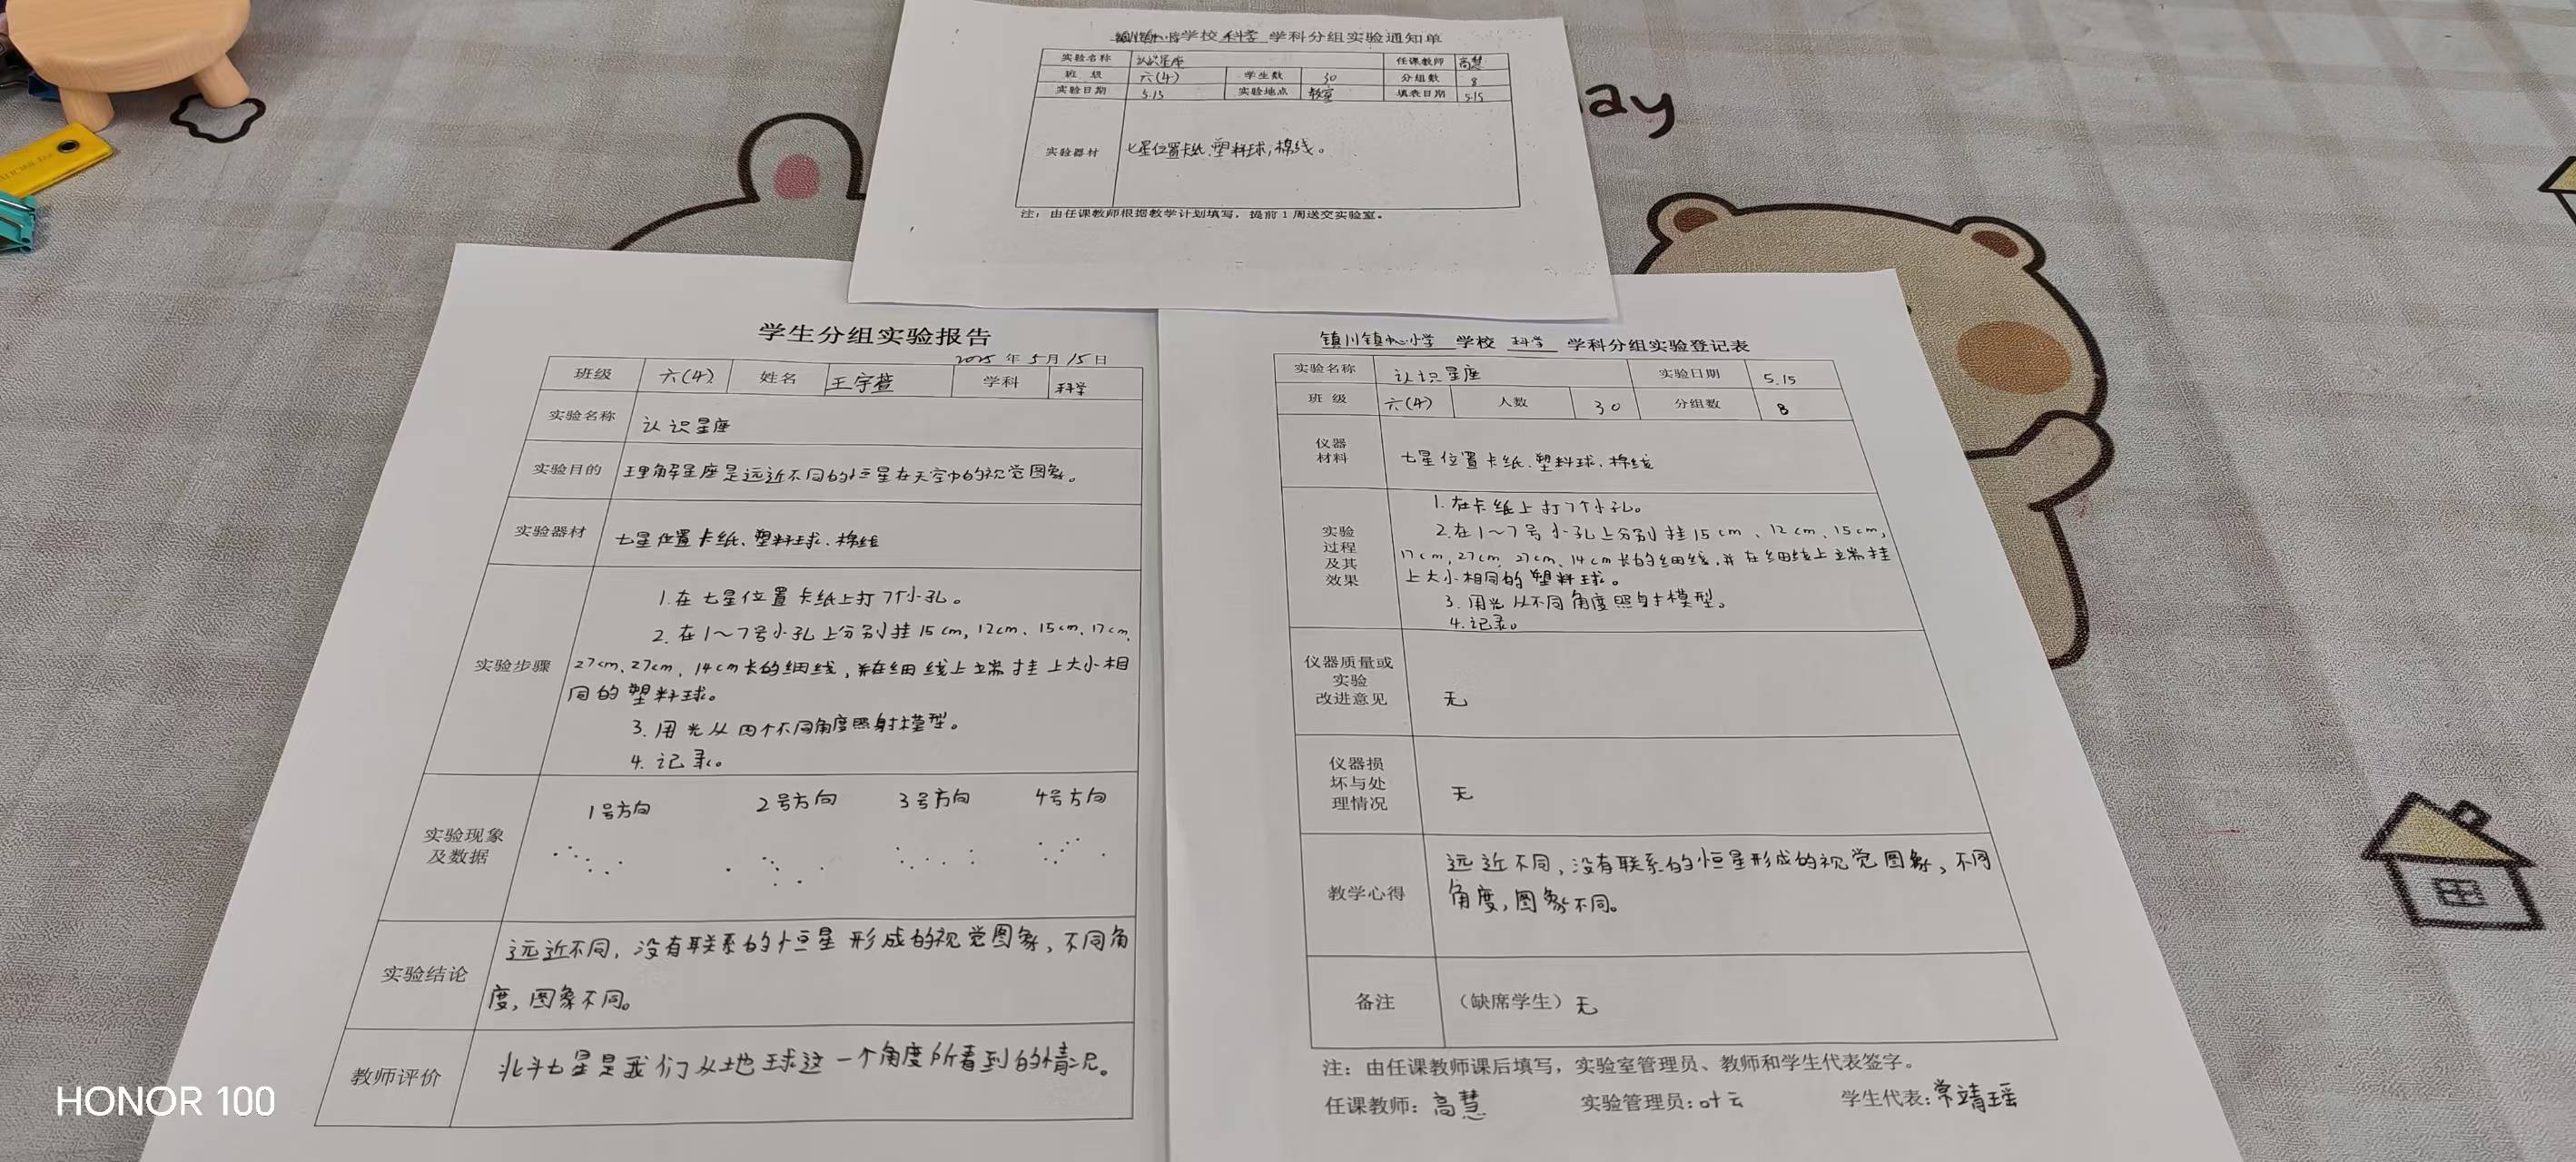 学校 科学 学科分组实验通知单
实验名称 认识星座 任课教师 高慧
班 级 六(4) 学生数 30 分组数 8
实验日期 5.15 实验地点 教室 填表日期 5.15
实验器材 七星位置卡纙、塑料球,棉线。
注:由任课教师根据教学计划填写,提前1周送交实验室。
ay
学生分组实验报告
2025 年 5 月 15 日
班级 六(4) 姓名 王宇萱 学科 科学
实验名称 认识星座
实验目的 理解星座是远近不同的恒星在天空中的视觉图象。
实验器材 七星位置卡纸、塑料球、棉线
实验步骤
1.在七星位置卡纸上打7个小孔。
2.在1~7号小孔上分别挂15cm,12cm、15cm、17cm、
27cm、27cm、14cm长的细线,并在细线上端挂上大小相
同的塑料球。
3.用光从四个不同角度照射模型。
4.记录。
实验现象
及数据
1号方向 2号方向 3号方向 4号方向
实验结论
远近不同,没有联系的恒星形成的视觉图象,不同角
度,图象不同。
教师评价 北斗七星是我们从地球这一个角度所看到的情况。
镇川镇中心小学 学校 科学 学科分组实验登记表
实验名称 认识星座 实验日期 5.15
班 级 六(4) 人数 30 分组数 8
仪器
材料
七星位置卡纸、塑料球、棉线
实验
过程
及其
效果
1.在卡纸上打7个小孔。
2.在1~7号小孔上分别挂15cm、12cm、15cm,
17cm,27cm,27cm、14cm长的细线,并在细线上端挂
上大小相同的塑料球。
3.用光从不同角度照射模型。
4.记录。
仪器质量或
实验
改进意见
无
仪器损
坏与处
理情况
无
教学心得
远近不同,没有联系的恒星形成的视觉图象,不同
角度,图象不同。
备注 (缺席学生)无
注:由任课教师课后填写,实验室管理员、教师和学生代表签字。
任课教师:高慧 实验管理员:叶云 学生代表:常靖瑶
HONOR 100